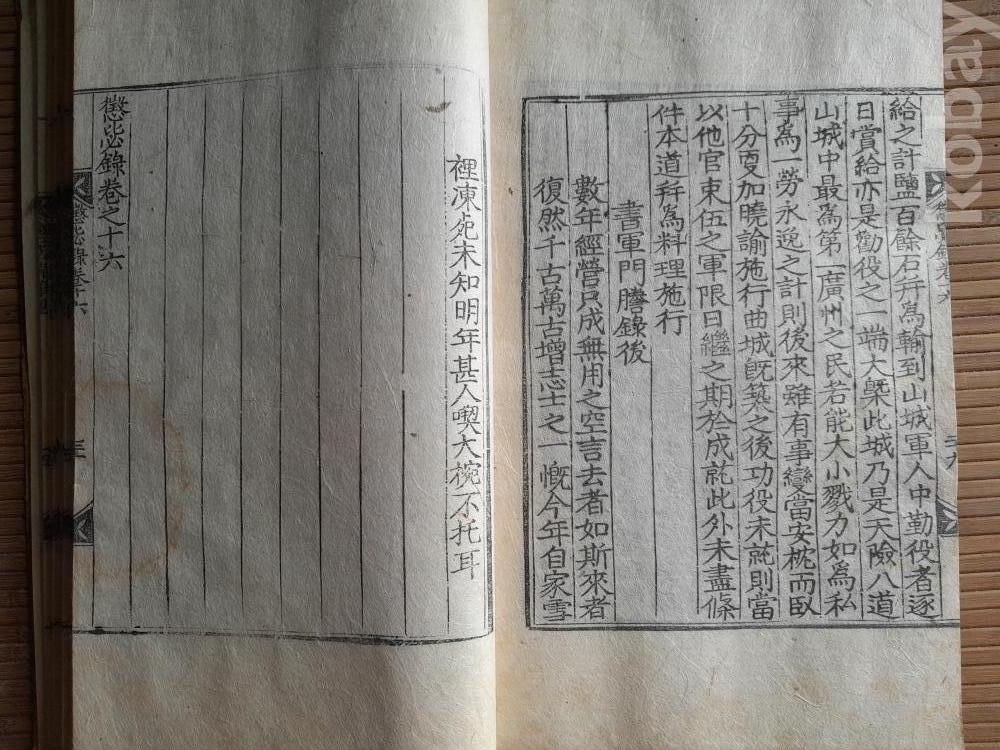 給之計鹽百餘石幷爲輸到山城軍人中勤役者逐
日賞給亦是勸役之一端大槩此城乃是天險八道
山城中最爲第一廣州之民若能大小戮力如爲私
事爲一勞永逸之計則後來雖有事變當安枕而臥
十分更加曉諭施行曲城旣築之後功役未訖則當
以他官束伍之軍限日繼之期於成訖此外未盡條
件本道幷爲料理施行
書軍門謄錄後
數年經營只成無用之空言去者如斯來者
復然千古萬古增志士之一慨今年自家雪
裡凍死未知明年甚人喫大椀不托耳
懲毖錄卷之十六
懲毖錄卷十六
kobay